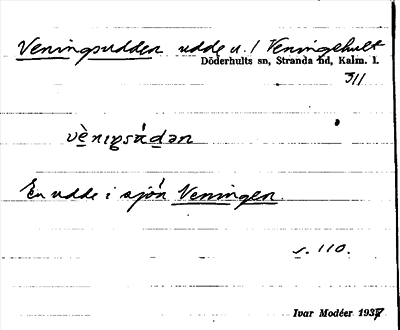 Veningsudden udde u. 1 Veningehult
Döderhults sn, Stranda hd, Kalm. l.
3/1
En udde i sjön Veningen.
s. 110.
Ivar Modéer 1937